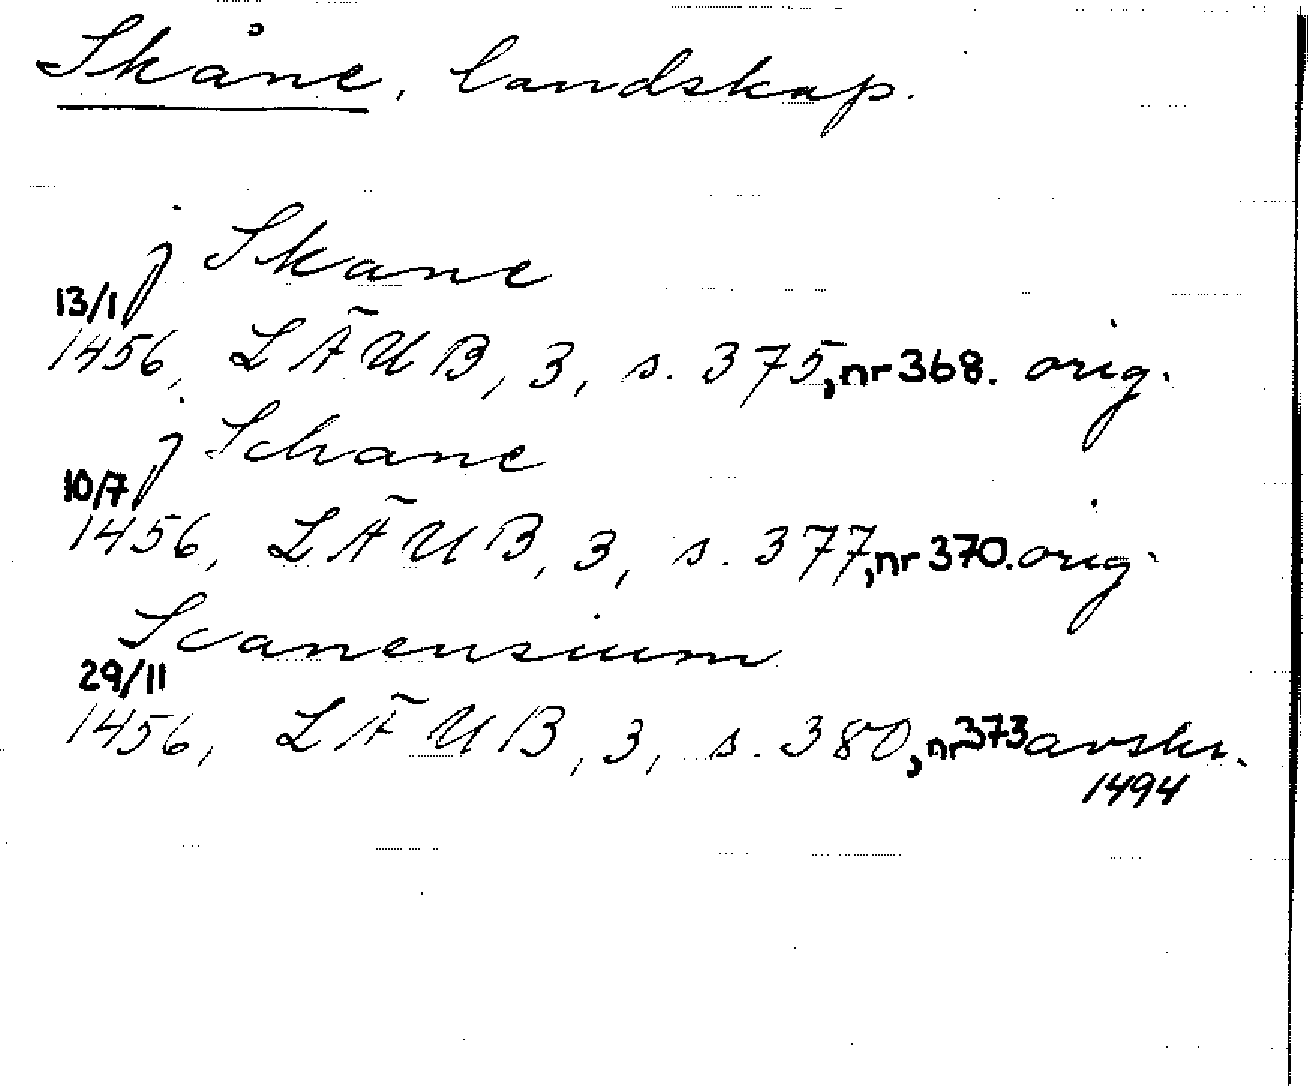 Skåne, landskap.
j Skane
13/1
1456, LÄUB, 3, s. 375, nr 368. orig.
j Schane
10/7
1456, LÄUB, 3, s. 377, nr 370. orig.
Scanensium
29/11
1456, LÄUB, 3, s. 380, nr 373 avskr.
1494